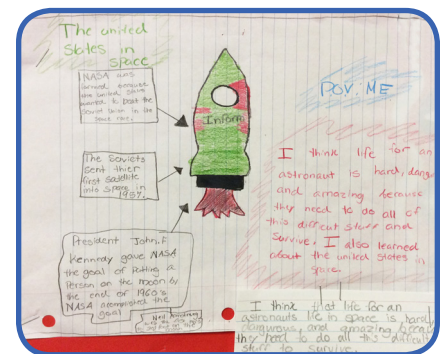 The united
states in
space
NASA was
formed because
the united states
wanted to beat the
Soviet Union in the
space race.
Inform
The Soviets
sent thier
first satellite
into space in
1957.
President John. F.
Kennedy gave NASA
the goal of Putting a
Person on the moon by
the end of 1960's
NASA accomplished the
goal
Neil Armstrong
POV: ME
I think life for an
astronaut is hard, dang
and amazing because
they need to do all of
this difficult stuff and
survive. I also learned
about the united states in
space.
I think that life for an
astronauts life in space is hard,
dangurous, and amazing becau
they need to do all this difficult
stuff to survive.